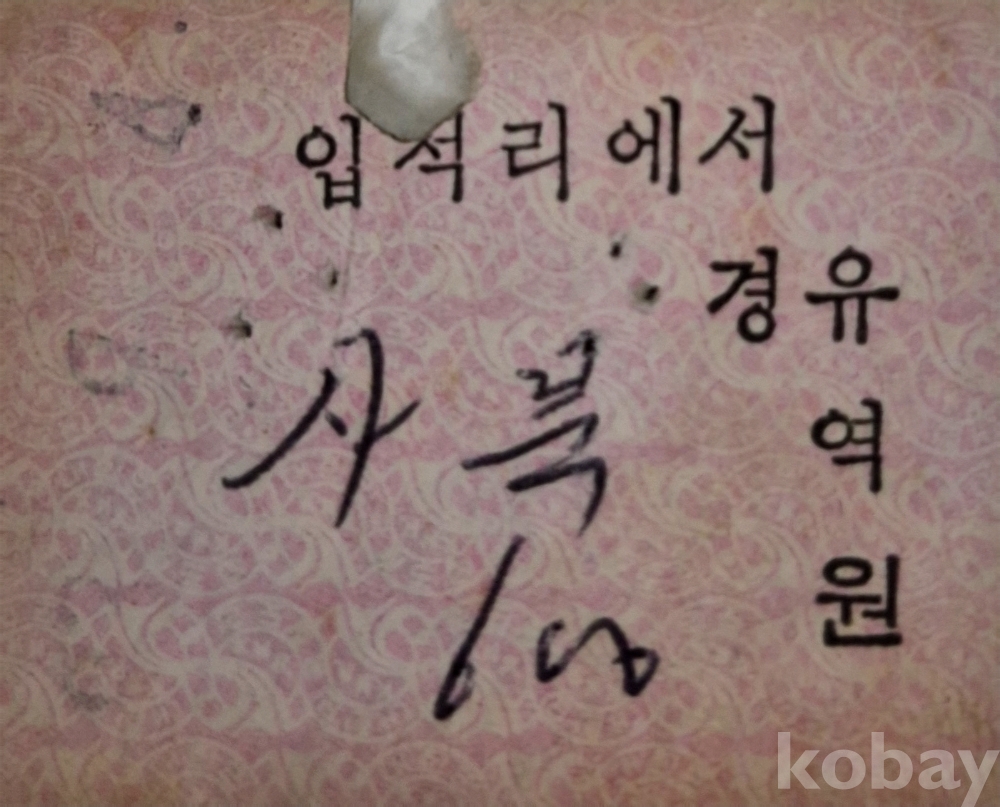 입석리에서
경유
역
원
사북
600
kobay